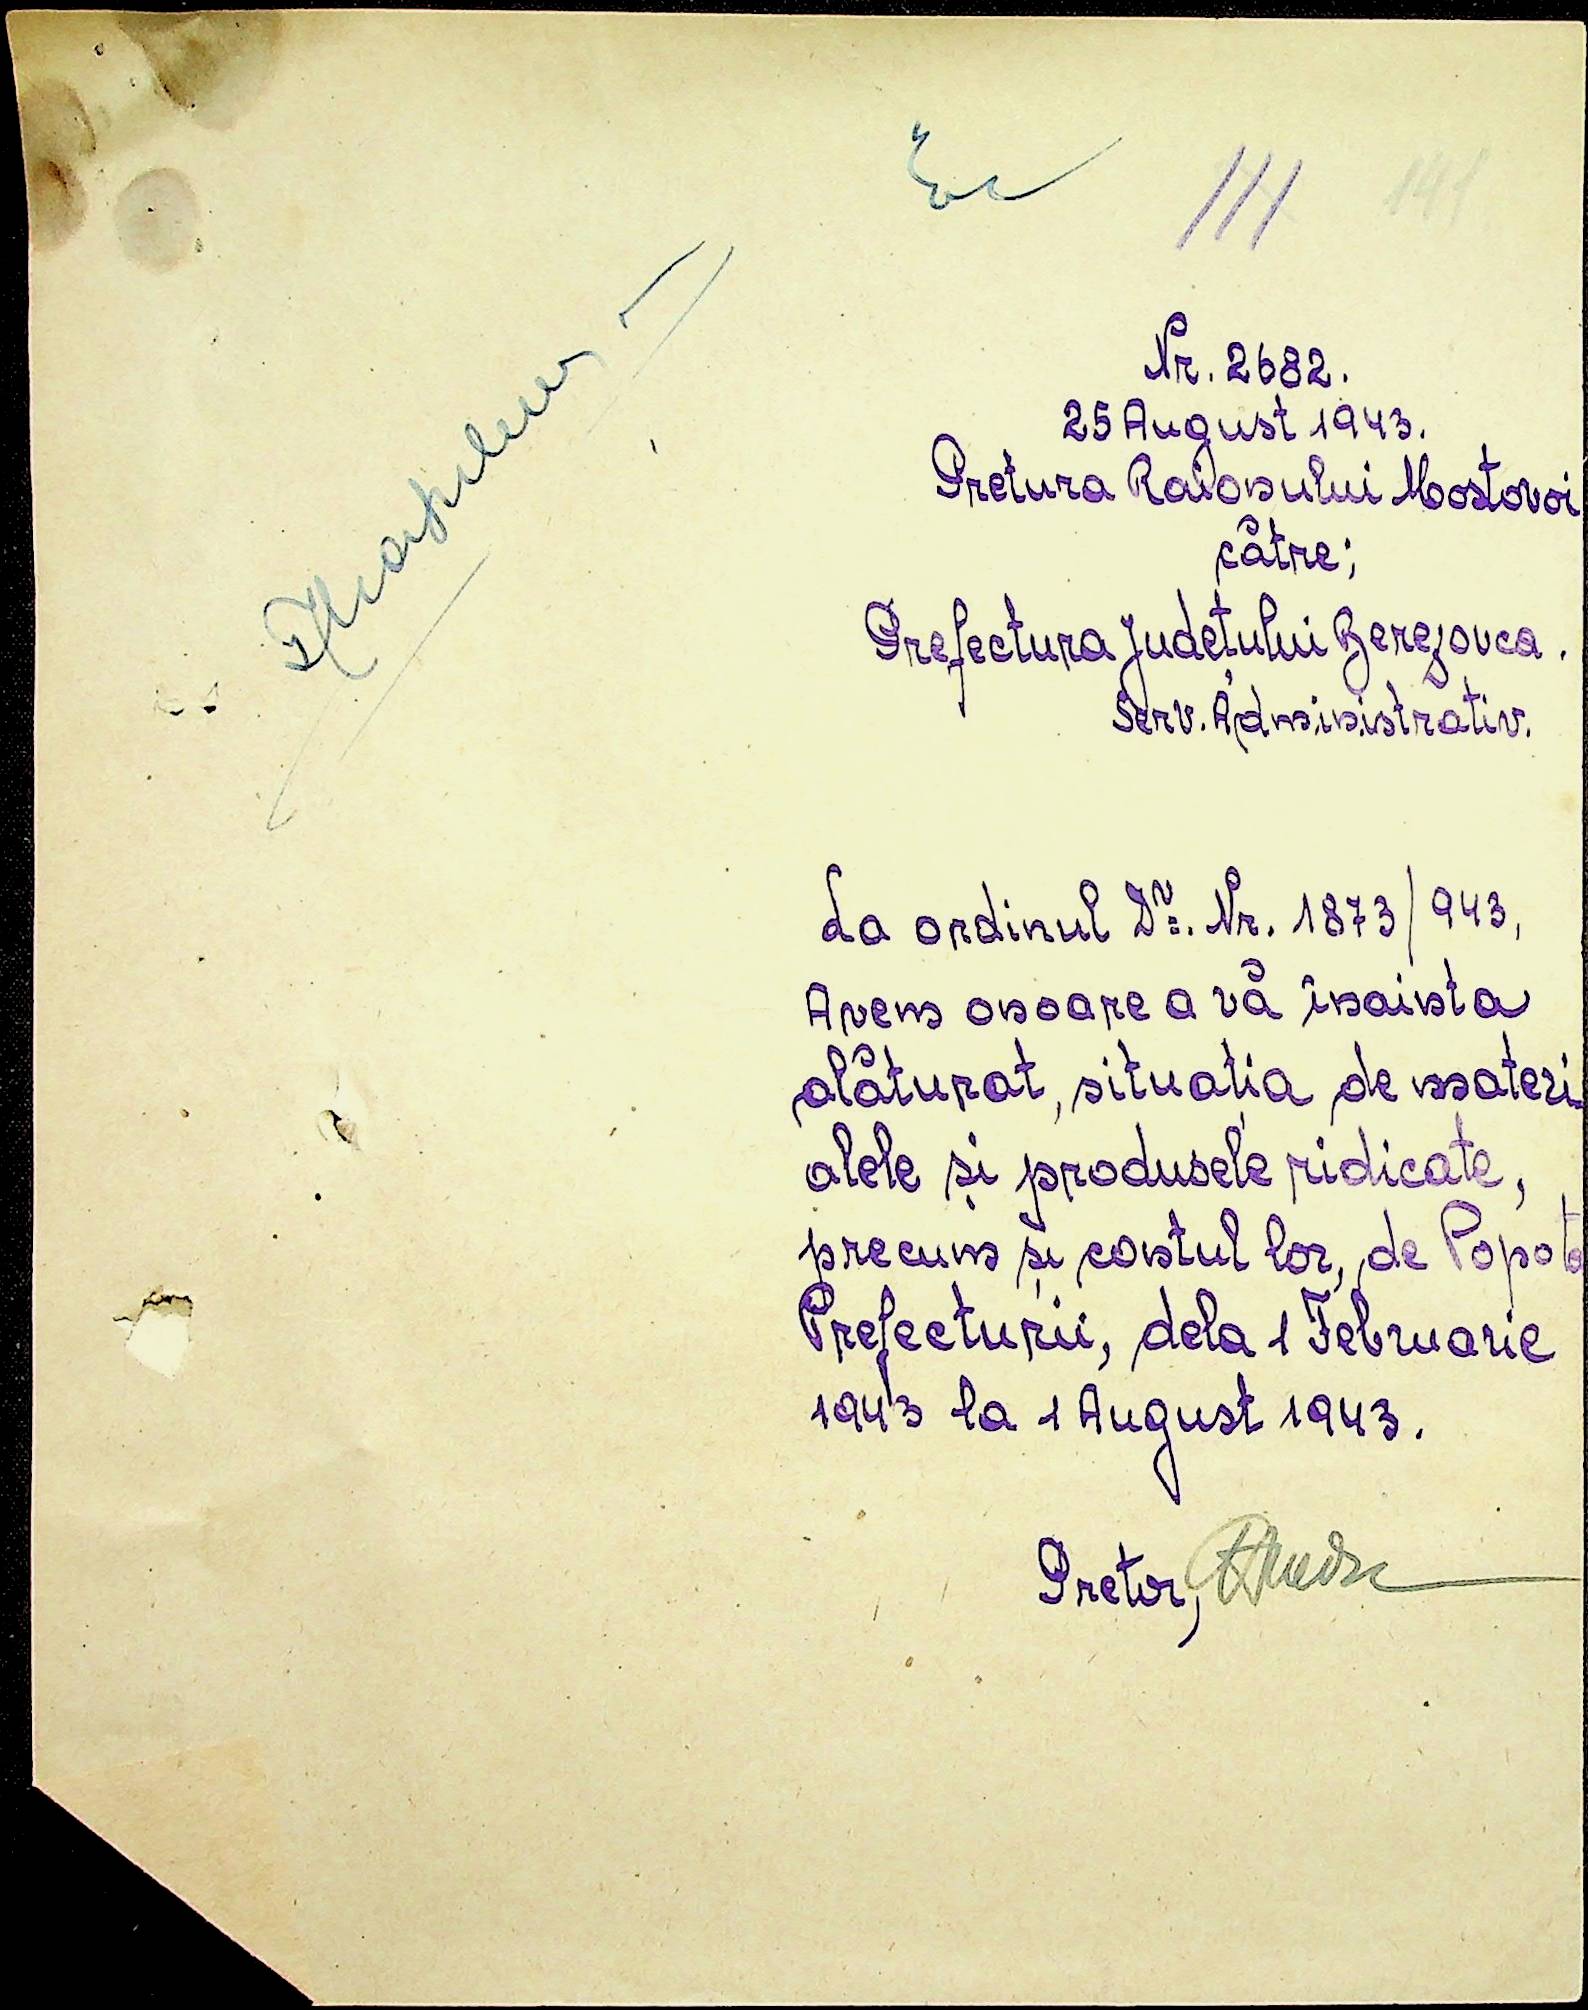 111
141
Nr. 2682.
25 August 1943.
Pretura Raionului Mostovoi
către;
Prefectura Județului Berezovca.
Serv. Administrativ.
La ordinul Dv. Nr. 1873/943,
Avem onoare a vă înainta
alăturat, situația de materi
alele și produsele ridicate,
precum și costul lor, de Popota
Prefecturii, dela 1 Februarie
1943 la 1 August 1943.
Pretor,